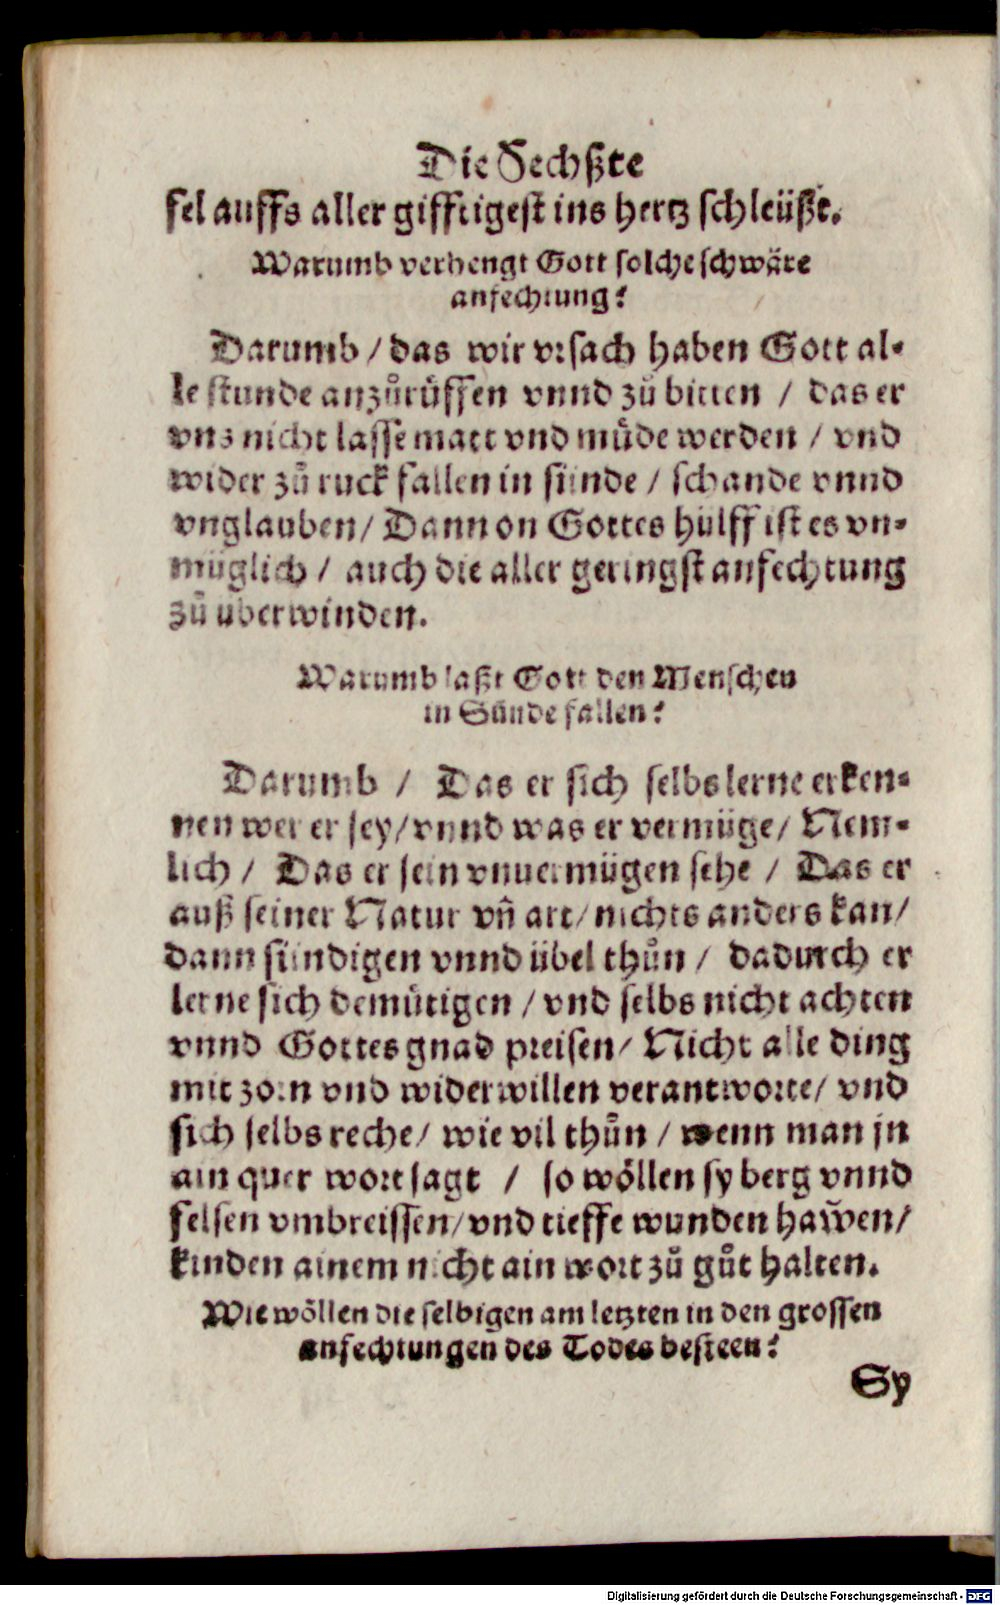 Die Sechßte
fel auffs aller gifftigest ins hertz schleüßt.
Warumb verhengt Gott solche schwäre
anfechtung?
Darumb / das wir vrsach haben Gott al-
le stunde anzůrůffen vnnd zů bitten / das er
vns nicht lasse matt vnd můde werden / vnd
wider zů ruck fallen in sünde / schande vnnd
vnglauben / Dann on Gottes hülff ist es vn-
müglich / auch die aller geringst anfechtung
zů überwinden.
Warumb laßt Gott den Menschen
in Sünde fallen?
Darumb / Das er sich selbs lerne erken-
nen wer er sey / vnnd was er vermüge / Nem-
lich / Das er sein vnuermügen sehe / Das er
auß seiner Natur vñ art / nichts anders kan /
dann sündigen vnnd übel thůn / dadurch er
lerne sich demütigen / vnd selbs nicht achten
vnnd Gottes gnad preisen / Nicht alle ding
mit zorn vnd widerwillen verantworte / vnd
sich selbs reche / wie vil thůn / wenn man jn
ain quer wort sagt / so wöllen sy berg vnnd
felsen vmbreissen / vnd tieffe wunden hawen /
kinden ainem nicht ain wort zů gůt halten.
Wie wöllen die selbigen am letzten in den grossen
anfechtungen des Todes besteen?
Sy
Digitalisierung gefördert durch die Deutsche Forschungsgemeinschaft - DFG